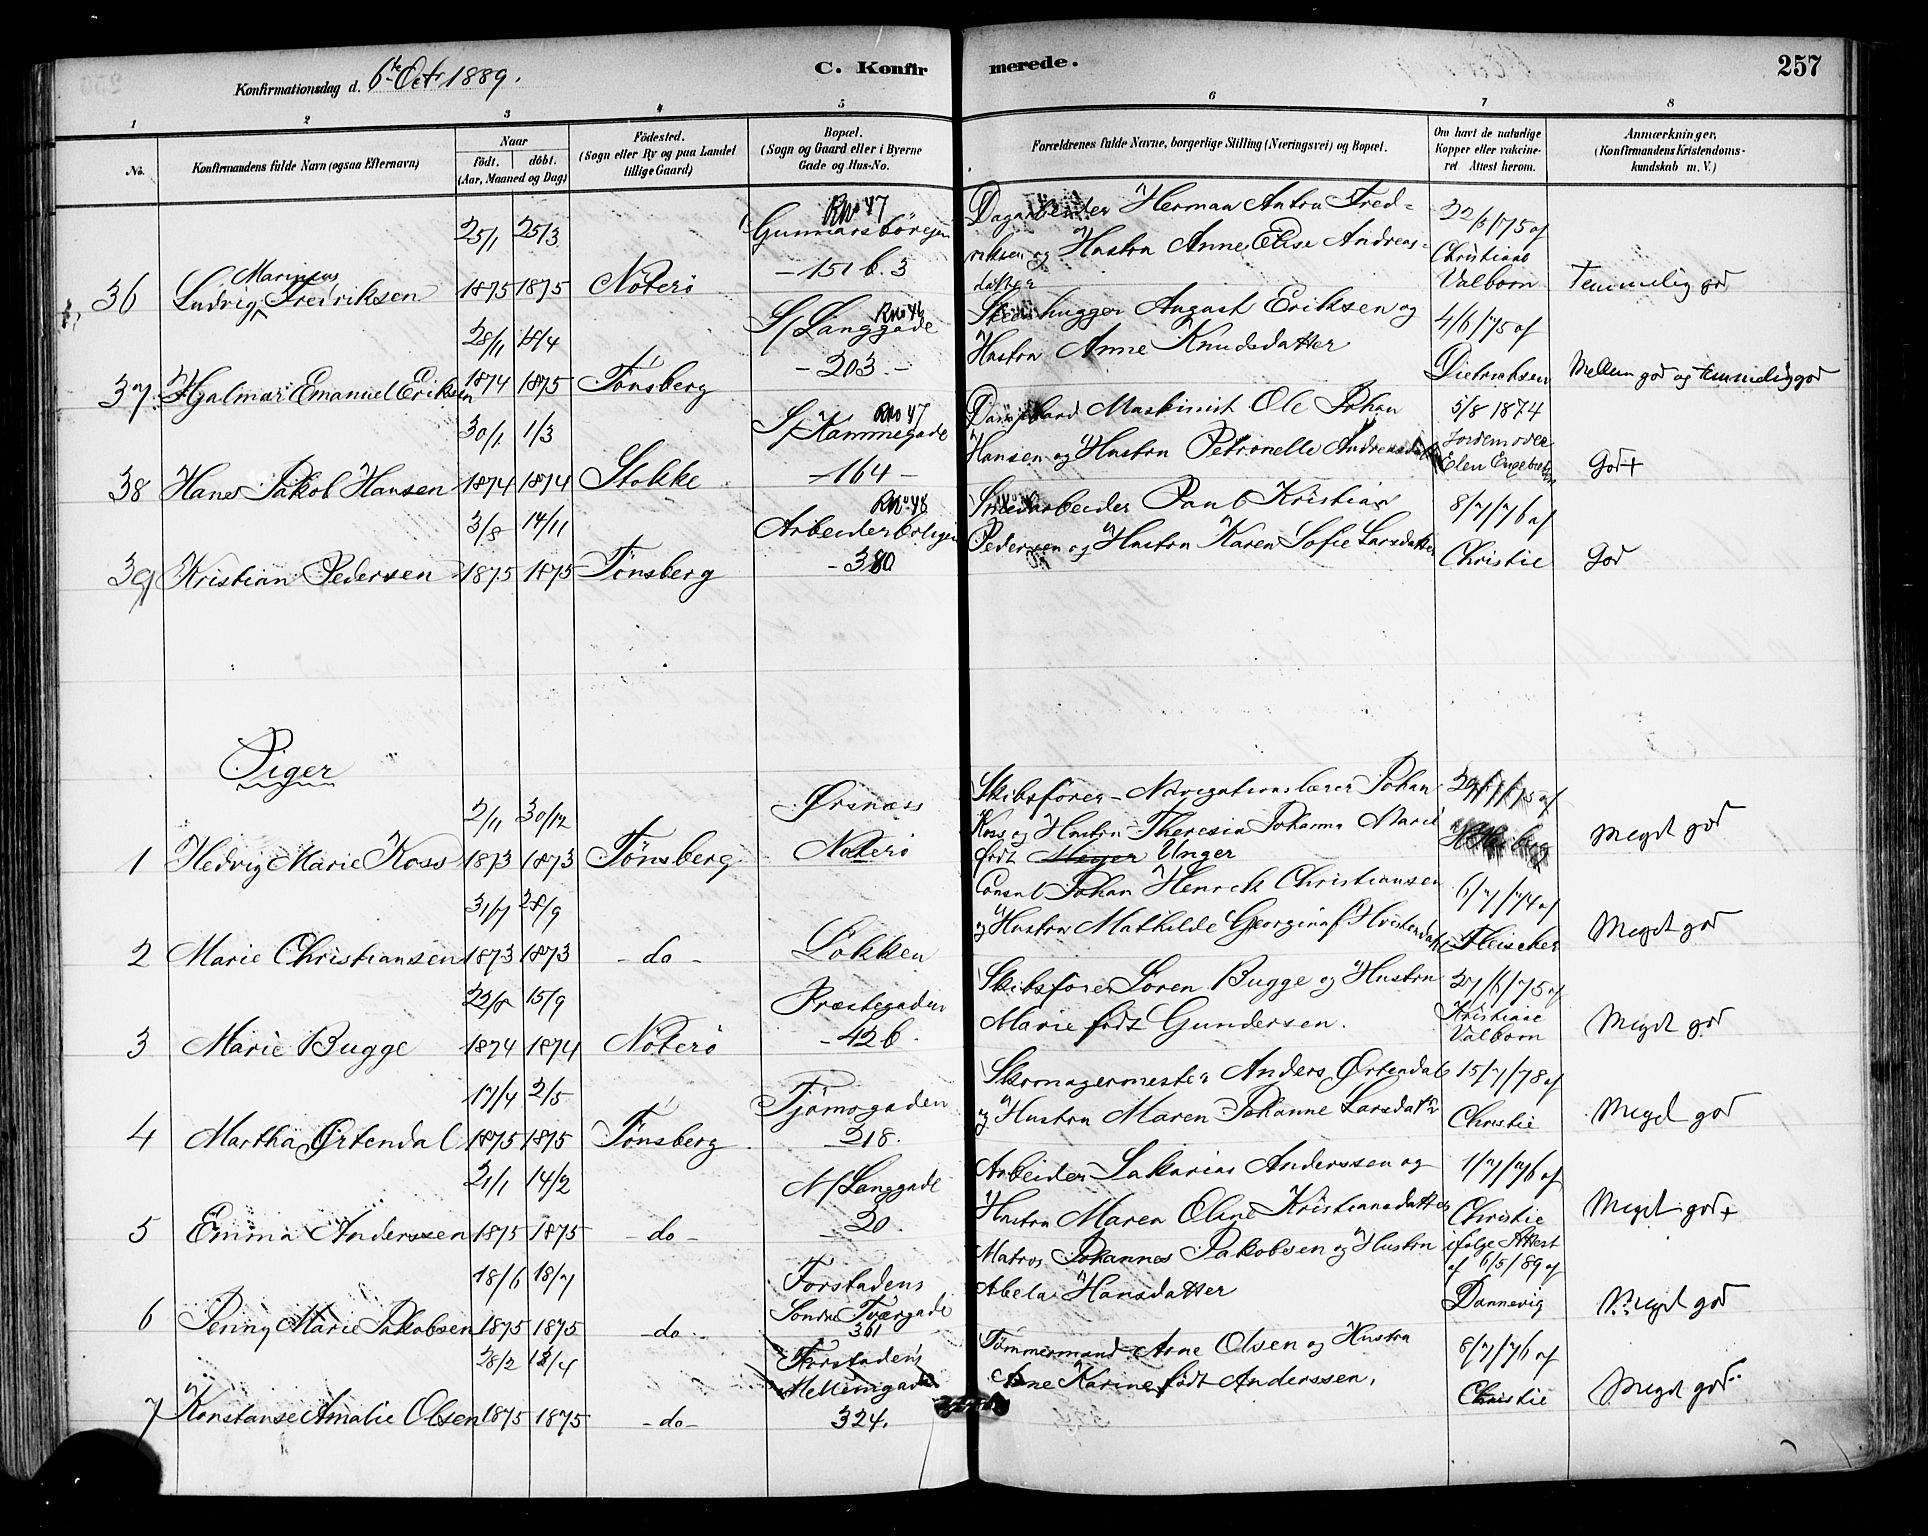 Konfirmationsdag d. 6te Octr 1889.
C. Konfirmerede.
257
1 2 3 4 5 6 7 8
No.
Konfirmandens fulde Navn (ogsaa Efternavn)
Naar
födt. döbt.
(Aar, Maaned og Dag)
Födested.
(Sogn eller By og paa Landet
tillige Gaard)
Bopæl.
(Sogn og Gaard eller i Byerne
Gade og Hus-No.
Forældrenes fulde Navne, borgerlige Stilling (Næringsvei) og Bopæl.
Om havt de naturlige
Kopper eller vakcine-
ret Attest herom.
Anmærkninger,
(Konfirmandens Kristendoms-
kundskab m. V.)
36 Ludvig Marinius Fredriksen
25/1 1875
25/3 1875
Nöterö
RNo 47
Gunnarsböregen
- 151 b. 3
Dagarbeider Herman Anton Fred-
riksen og Hustru Anne Elise Andreas-
datter
22/6/75 af
Christiane
Valborn
Temmelig god
37. Hjalmar Emanuel Eriksen
28/11 1874
18/4 1875
Tönsberg
RNo 46
S/Langgade
- 203. -
Stenhugger August Eriksen og
Hustru Anne Knudsdatter
4/6/75 af
Dietrichsen
Mellem god og temmelig god
38 Hans Jakob Hansen
30/1 1874
1/3 1874
Stokke
RNo 47
S/Kammegade
- 164 -
Maskinist Ole Johan
Hansen og Hustru Petronelle Andreasdatter
5/8 1874
Jordemoder
Elen Engebretsen
God+
39 Kristian Pedersen
3/8 1875
14/11 1875
Tönsberg
RNo 48
Arbeiderboligen
- 380
Smedarbeider Paul Kristian
Pedersen og Hustru Karen Sofie Larsdatter
8/7/76 af
Christie
God
Piger
1 Hedvig Marie Koss
2/11 1873
30/12 1873
Tönsberg
Ørsnæs
Nöterö
Skibsförer - Navigationslærer Johan
Koss og Hustru Theresia Johanna Marie
födt Meyer Unger
Meget god
2 Marie Christiansen
31/7 1873
28/9 1873
- do -
Lökken
Consul Johan Henrik Christiansen
og Hustru Mathilde Georgina f. Hvistendahl
6/7/74 af
Fleischer
Meget god
3 Marie Bugge
22/8 1874
15/9 1874
Nöterö
Præstegaden
- 42 b.
Skibsförer Sören Bugge og Hustru
Marie födt Gundersen.
27/6/75 af
Kristiane
Valborn
Meget god
4 Martha Ørtendal
17/4 1875
2/5 1875
Tönsberg
Tjömogaden
218.
Skomagermester Anders Ørtendal
og Hustru Maren Johanne Larsdatter
15/7/78 af
Christie
Meget god
5 Emma Anderssen
21/1 1875
14/2 1875
- do -
N/Langgade
20.
Arbeider Sakarias Anderssen og
Hustru Maren Eline Kristiansdatter
1/7/76 af
Christie
Meget god+
6 Penny Marie Jakobsen
18/6 1875
18/7 1875
- do -
Forstadens
Söndre Tværgade
361
Matros Johannes Jakobsen og Hustru
Abela Hansdatter
ifölge Attest
af 6/5/89 af
Dannevig
Meget god
7 Konstanse Amalie Olsen
28/2 1875
18/4 1875
- do -
Forstadens
Mellemgade
324.
Tömmermand Arne Olsen og Hustru
Anne Karine födt Anderssen.
8/7/76 af
Christie
Meget god